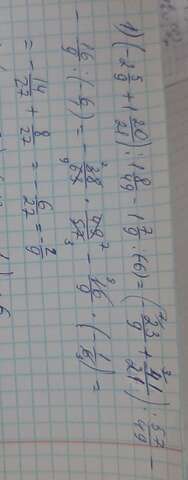 1) (-2 5/9 + 1 20/21) : 1 8/49 - 1 7/9 : (-6) = (-23/9 + 41/21) : 57/49 -
- 16/9 : (-6) = - 38/63 · 49/57 - 16/9 · (-1/6) =
= - 14/27 + 8/27 = - 6/27 = - 2/9